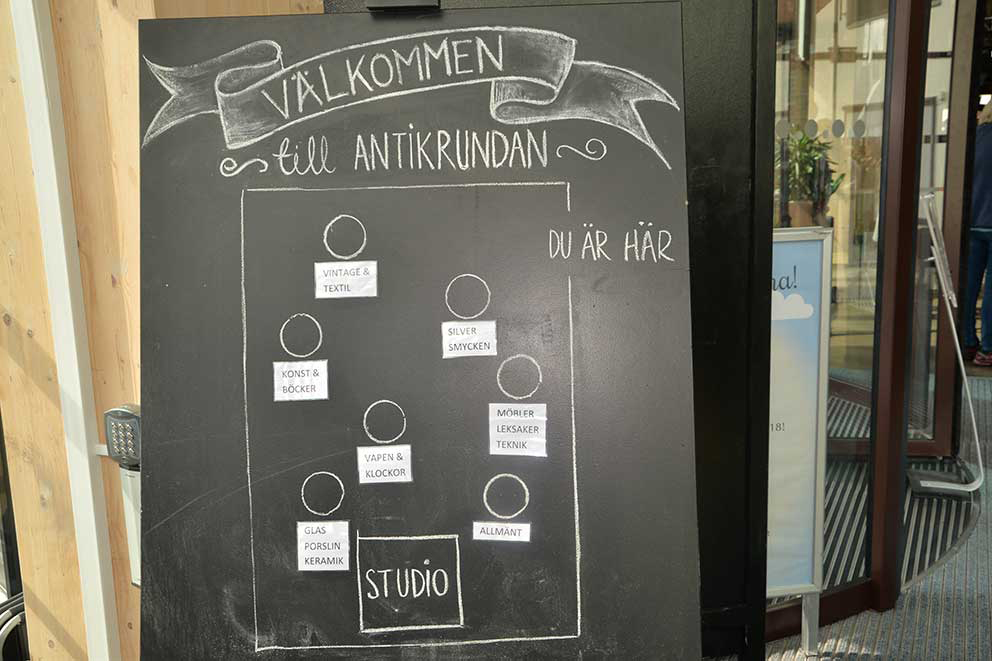 VÄLKOMMEN
till ANTIKRUNDAN
DU ÄR HÄR
VINTAGE &
TEXTIL
SILVER
SMYCKEN
KONST &
BÖCKER
MÖBLER
LEKSAKER
TEKNIK
VAPEN &
KLOCKOR
GLAS
PORSLIN
KERAMIK
ALLMÄNT
STUDIO